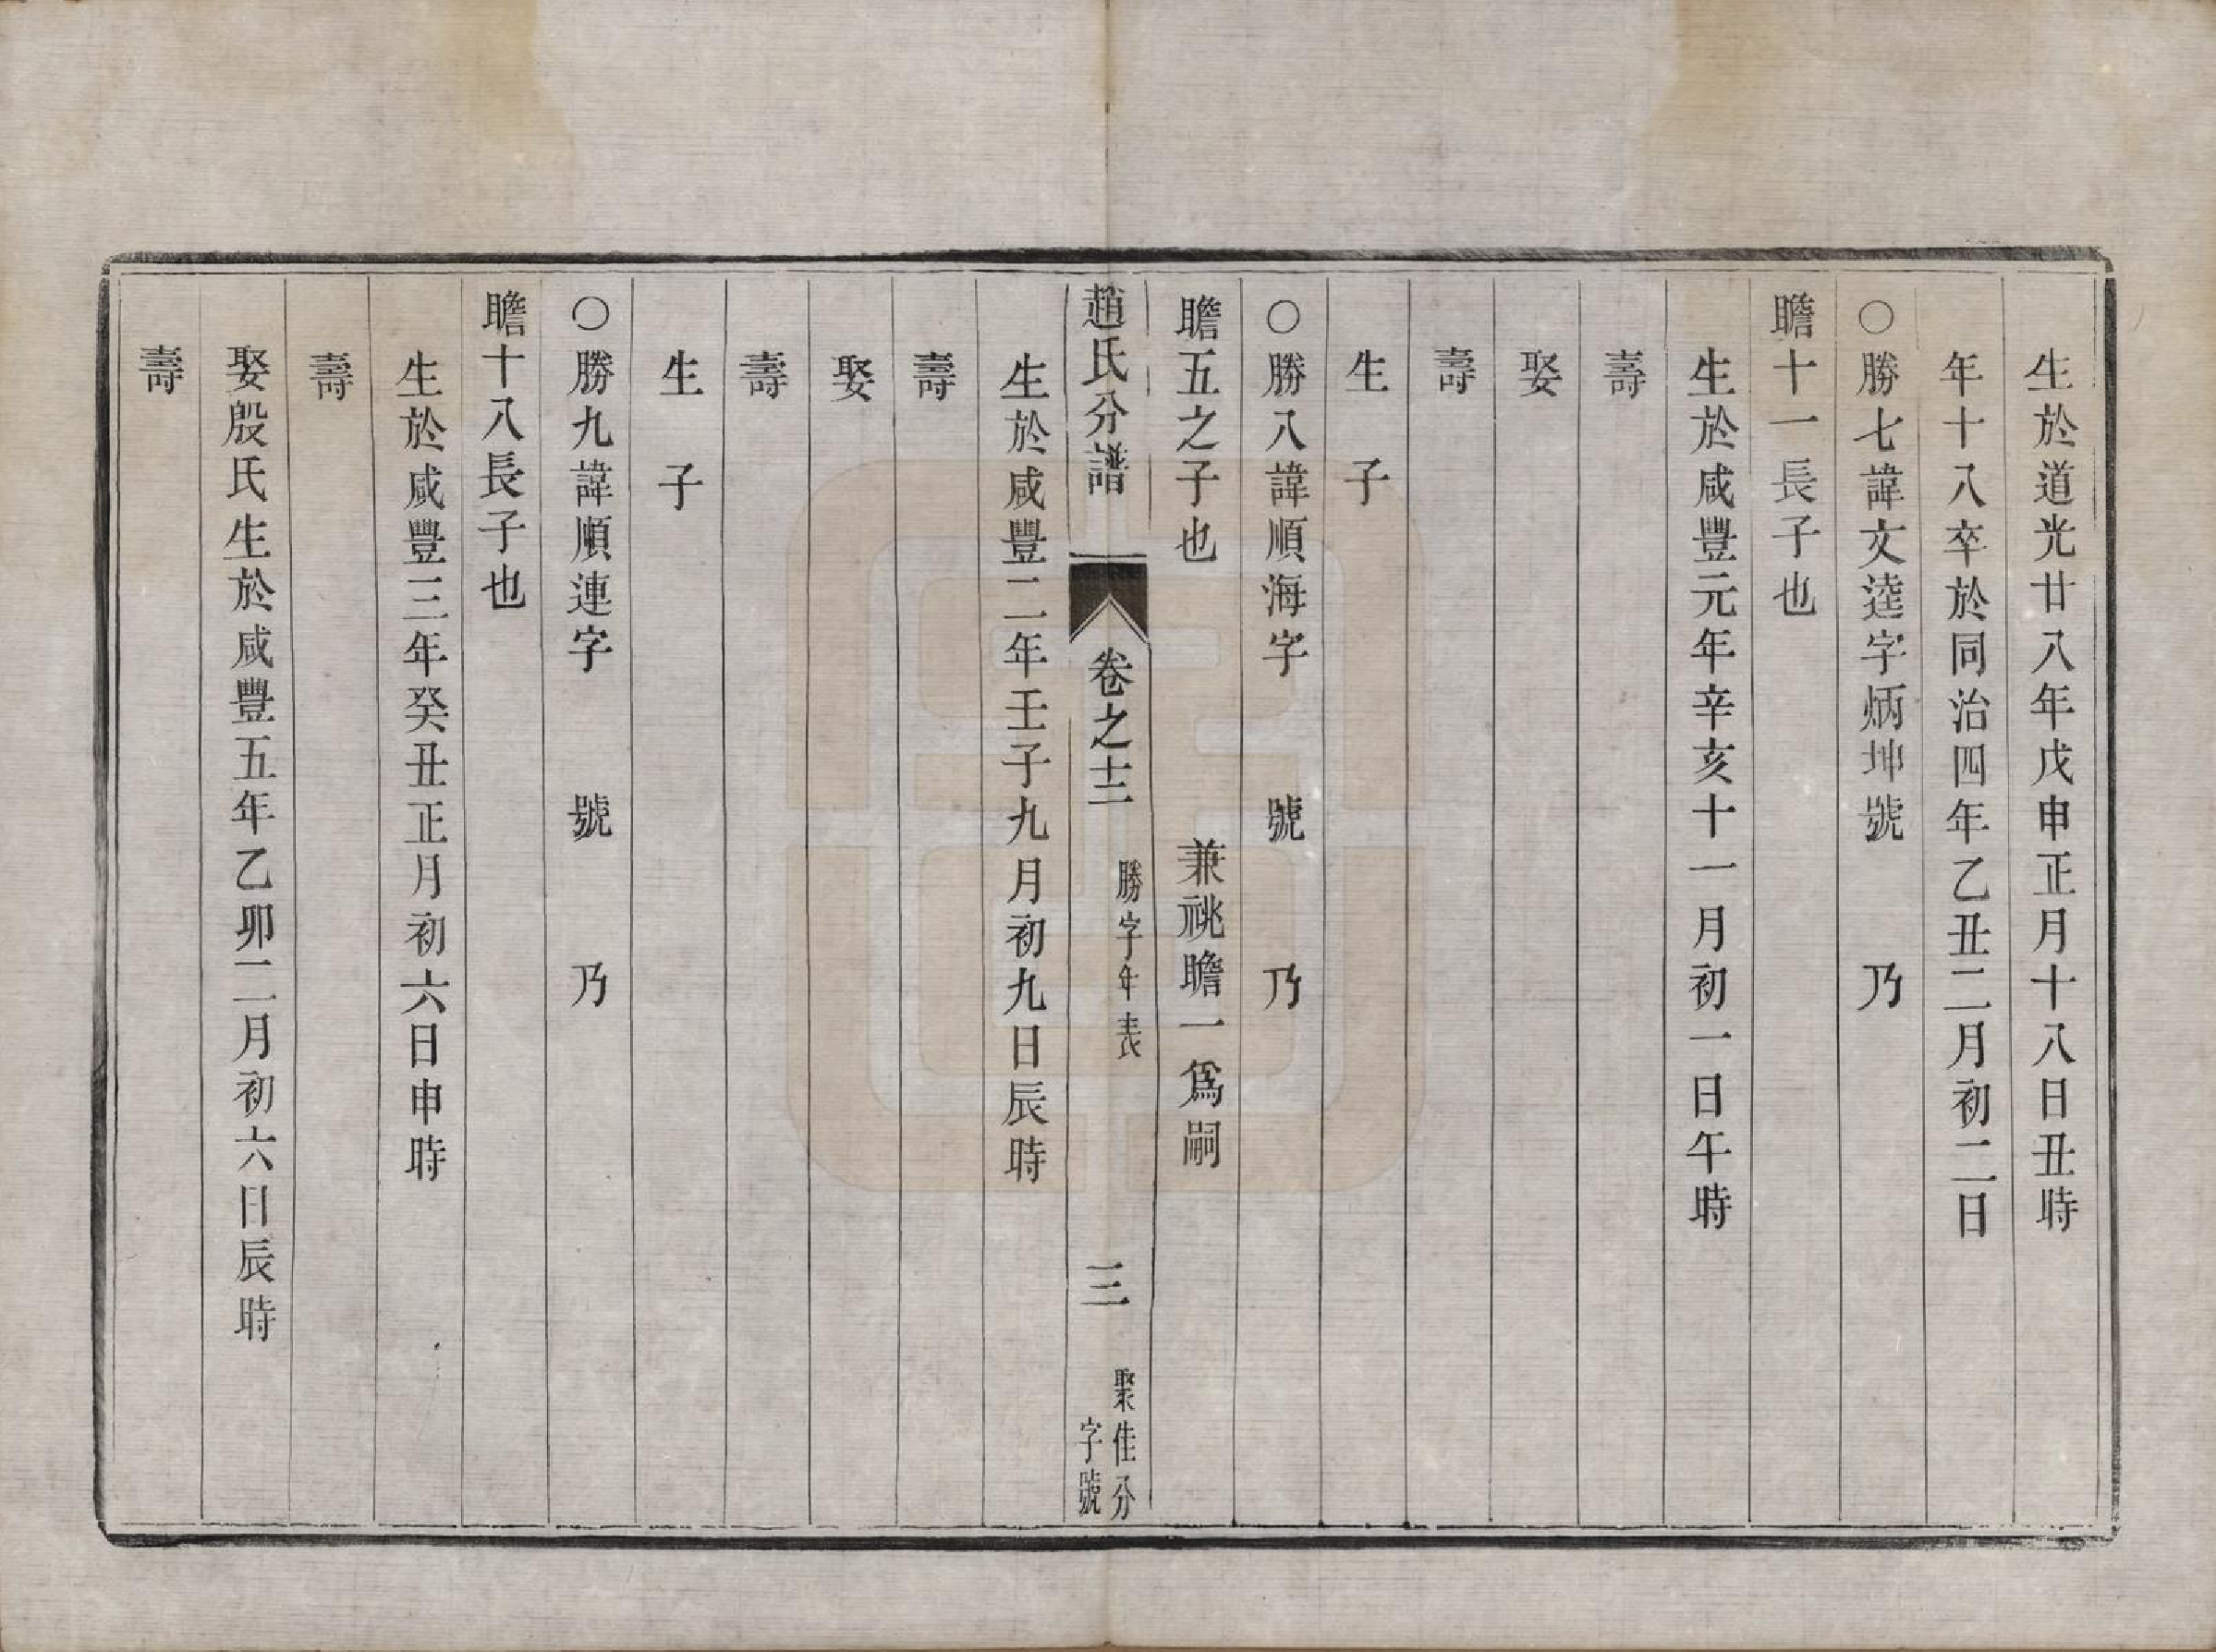 生於道光廿八年戊申正月十八日丑時
年十八卒於同治四年乙丑二月初二日
○勝七諱文逵字炳坤號　乃
瞻十一長子也
生於咸豐元年辛亥十一月初一日午時
壽
娶
壽
生　子
○勝八諱順海字　號　乃
瞻五之子也　兼祧瞻一爲嗣
趙氏分譜　卷之十二　勝字年表　三　聚佳分字號
生於咸豐二年壬子九月初九日辰時
壽
娶
壽
生　子
○勝九諱順連字　號　乃
瞻十八長子也
生於咸豐三年癸丑正月初六日申時
壽
娶殷氏生於咸豐五年乙卯二月初六日辰時
壽